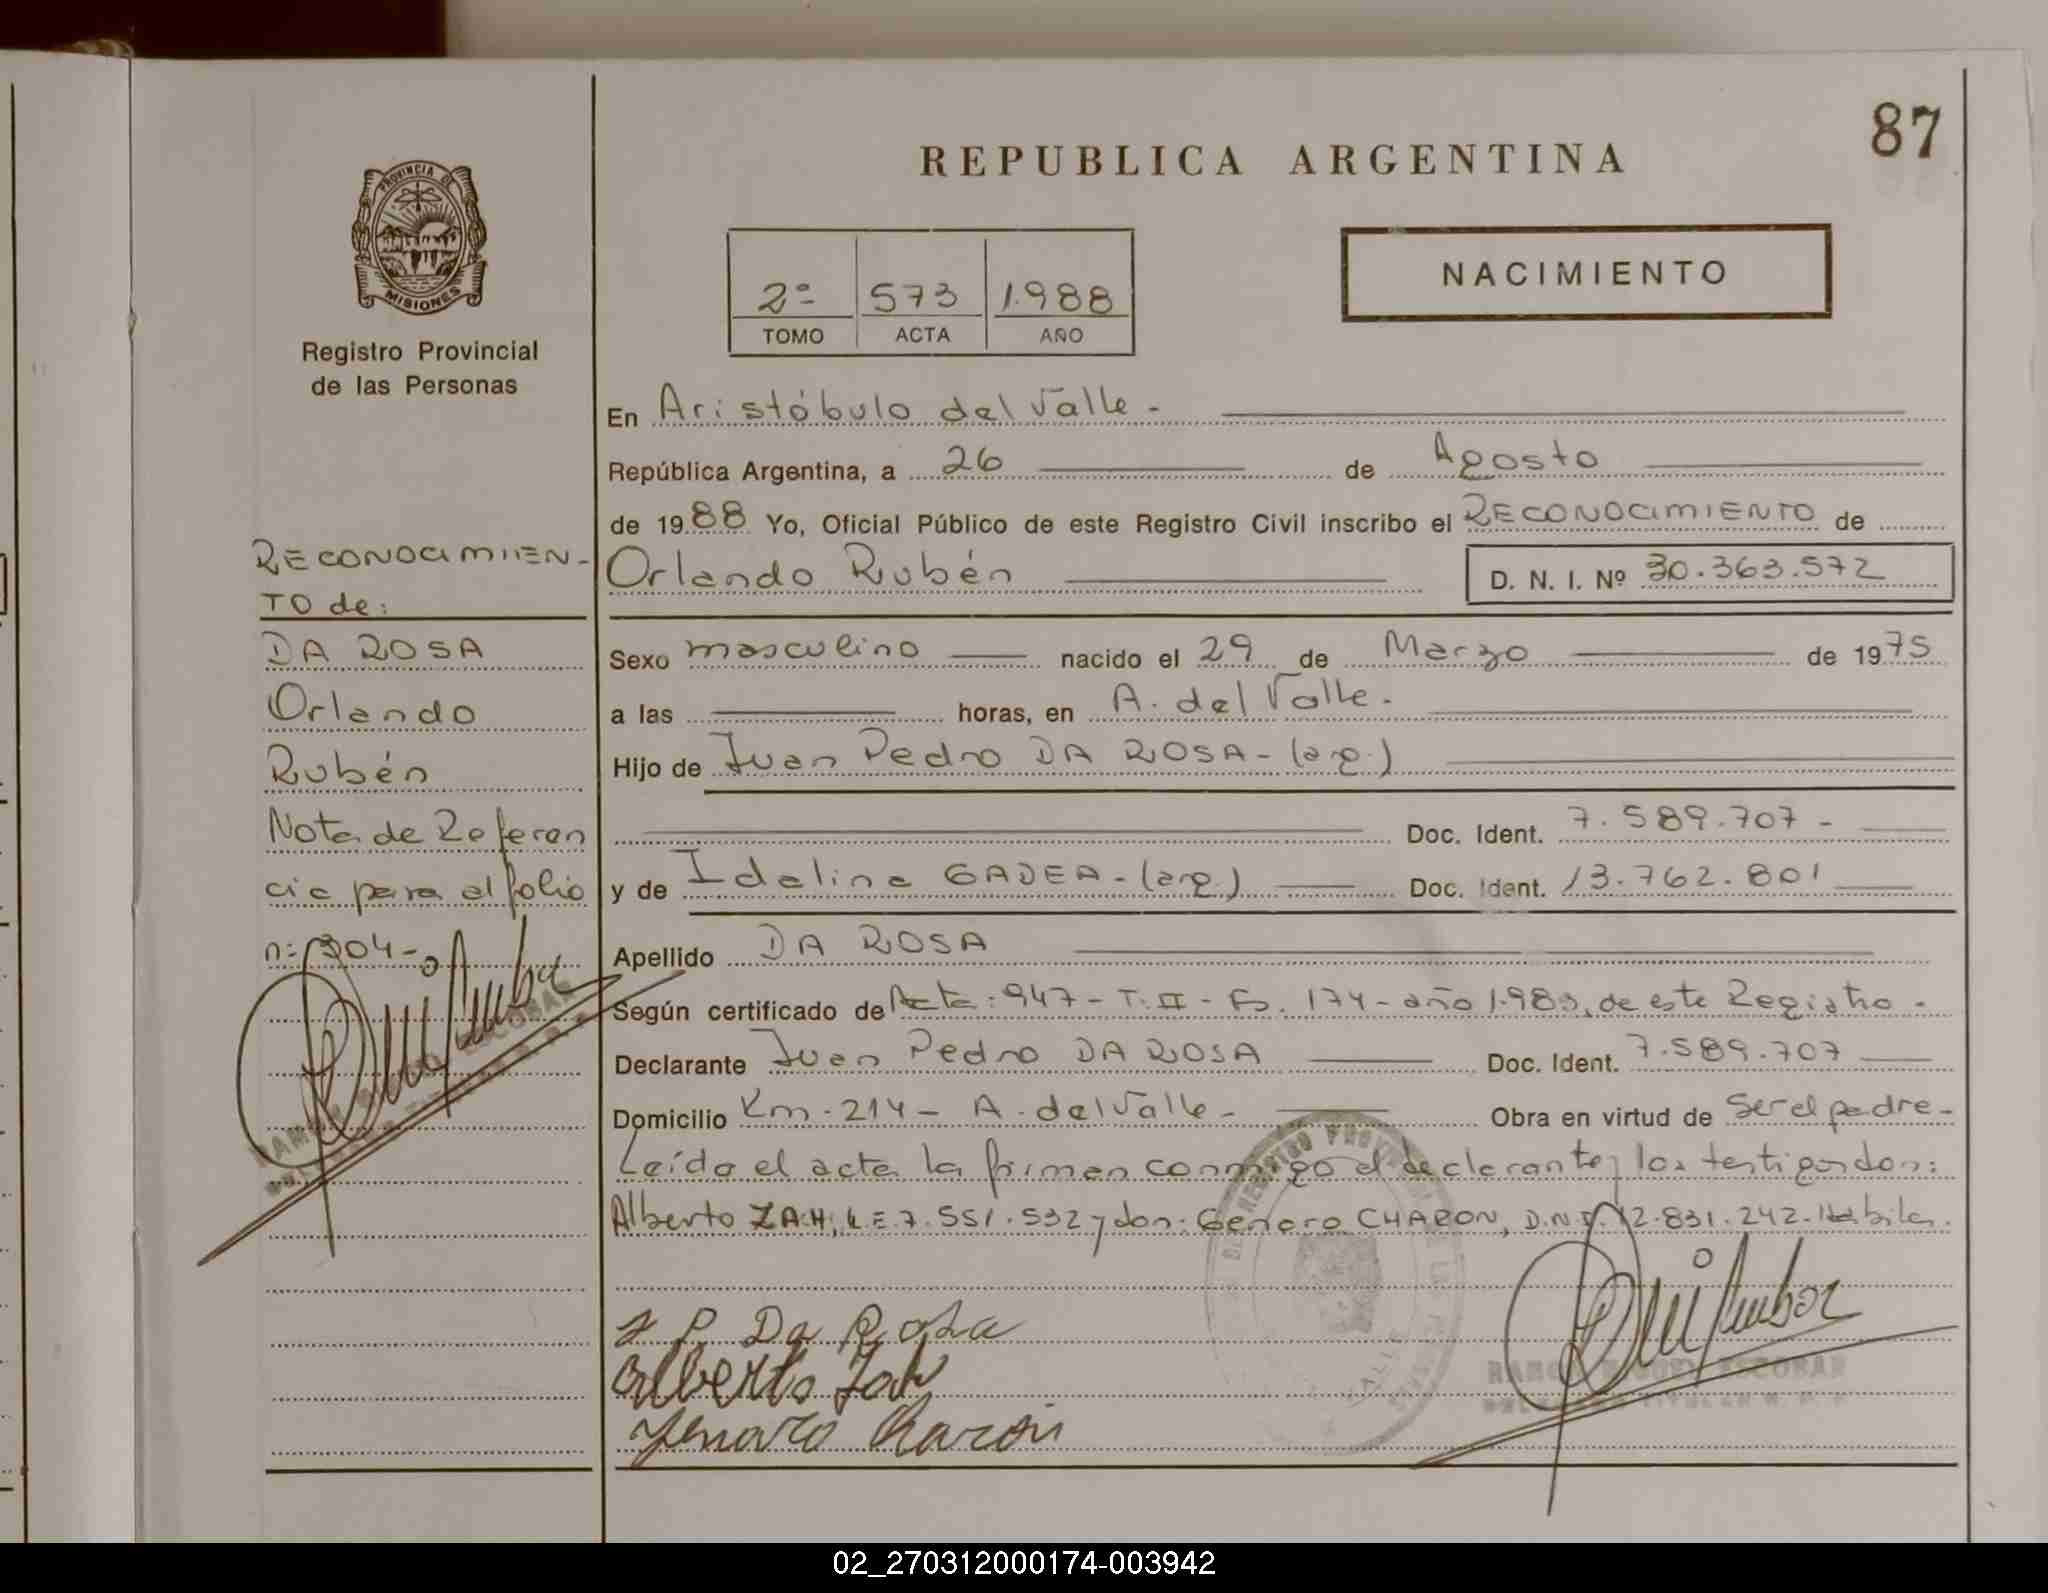 87
REPUBLICA ARGENTINA
PROVINCIA DE
MISIONES
Registro Provincial
de las Personas
2º 573 1.988
TOMO ACTA AÑO
NACIMIENTO
En Aristóbulo del Valle -
República Argentina, a 26 de Agosto
de 1988 Yo, Oficial Público de este Registro Civil inscribo el RECONOCIMIENTO de
Orlando Rubén D. N. I. Nº 30.363.572
Sexo masculino nacido el 29 de Marzo de 1975
a las horas, en A. del Valle.
Hijo de Juan Pedro DA ROSA - (arg.)
Doc. Ident. 7.589.707 -
y de Idalina GADEA - (arg.) Doc. Ident. 13.762.801
Apellido DA ROSA
Según certificado de Acta: 947 - T. II - Fo. 174 - año 1.983, de este Registro -
Declarante Juan Pedro DA ROSA Doc. Ident. 7.589.707
Domicilio Km. 214 - A. del Valle - Obra en virtud de Ser el padre -
Leída el acta la firman conmigo el declarante y los testigos don:
Alberto ZAH, L.E. 7.551.532 y don: Genaro CHARON, D.N.I. 12.831.242. Habiles.
J P. Da Rosa
Alberto Zah
Jenaro Charon
RAMON MIGUEL ESCOBAR
RECONOCIMIEN-
TO de:
DA ROSA
Orlando
Rubén
Nota de Referen
cia para el folio
n: 304 -
ESCOBAR
02_270312000174-003942